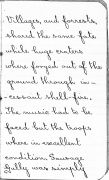 Villages, and forrests,
shared the same fate
while huge craters
where forged out of the
ground through in -
cessant shell-fire.
The music had to be
faced but the troops
where in excellent
condition. Sausage
Gully was simply